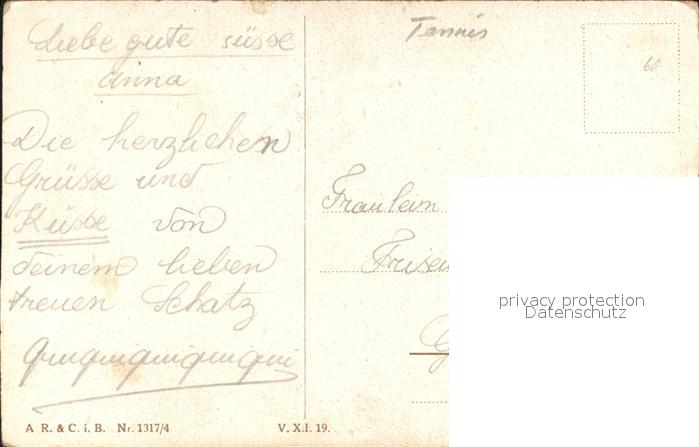 Liebe gute süsse
Anna
Die herzlichen
Grüsse und
Küsse von
deinem lieben
treuen Schatz
A R. & C. i. B. Nr. 1317/4
V. X.I. 19.
Tennis
60
Fräulein
privacy protection
Datenschutz